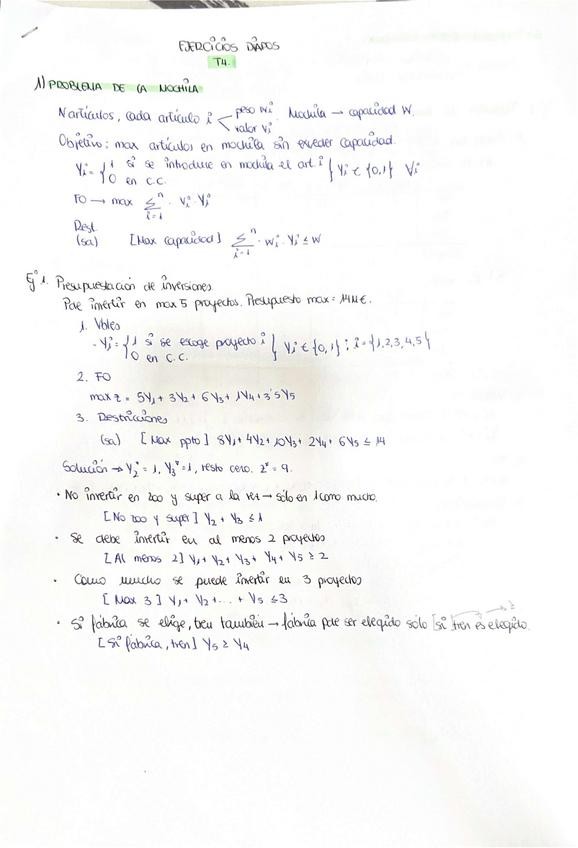 EJERCICIOS DADOS
T4.
1) PROBLEMA DE LA MOCHILA
N artículos, cada artículo i < peso wi valor vi. Mochila → capacidad W.
Objetivo: max artículos en mochila sin exceder capacidad.
Yi = { 1 si se introduce en mochila el art. i 0 en c.c. } Yi ∈ {0,1} ∀i
FO → max Σ i=1 n · Vi Yi
Rest.
(sa) [Max capacidad] Σ i=1 n · wi · Yi ≤ W
Ej 1. Presupuestación de inversiones.
Pde invertir en max 5 proyectos. Presupuesto max = 14M€.
1. Vbles
- Yi = { 1 si se escoge proyecto i 0 en c.c. } Yi ∈ {0,1} ; i = {1,2,3,4,5}
2. FO
max z = 5Y1 + 3Y2 + 6Y3 + 1Y4 + 3'5Y5
3. Restricciones
(sa) [Max ppto] 8Y1 + 4Y2 + 10Y3 + 2Y4 + 6Y5 ≤ 14
Solución → Y2* = 1, Y3* = 1, resto cero. z* = 9.
· No invertir en zoo y super a la vez → sólo en 1 como mucho.
[No zoo y super] Y2 + Y3 ≤ 1
· Se debe invertir en al menos 2 proyectos
[Al menos 2] Y1 + Y2 + Y3 + Y4 + Y5 ≥ 2
· Como mucho se puede invertir en 3 proyectos
[Max 3] Y1 + Y2 + ... + Y5 ≤ 3
· Si fábrica se elige, tren también → fábrica pde ser elegido sólo [si] tren es elegido. → ≥
[Si fábrica, tren] Y5 ≥ Y4